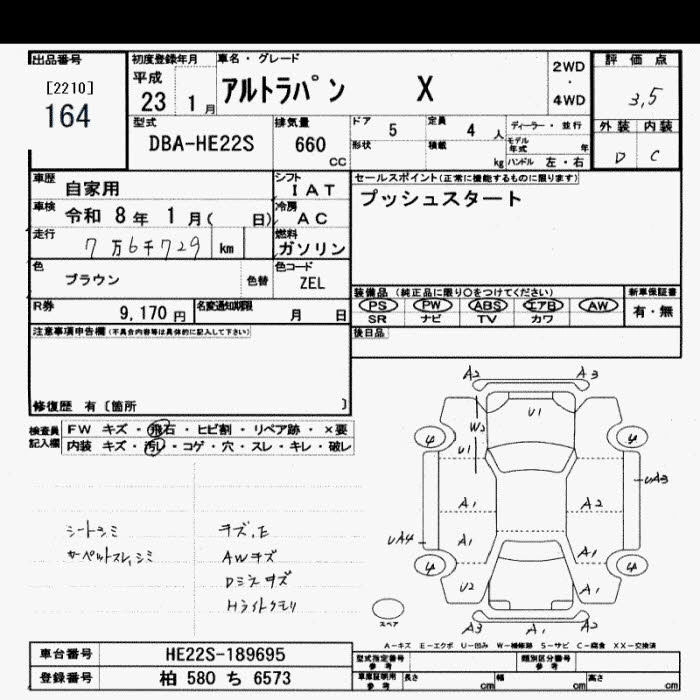 出品番号
[2210]
164
初度登録年月
平成
23 1 月
車名・グレード
アルトラパン X
2WD
・
4WD
評価点
3,5
外装 内装
D C
型式
DBA-HE22S
排気量
660
CC
ドア 5
形状
定員 4 人
積載 kg
ディーラー・並行
モデル年式 年
ハンドル 左・右
車歴 自家用
シフト
IAT
車検 令和 8 年 1 月( 日)
冷房
AC
走行 7万6千729 km
燃料
ガソリン
色 ブラウン 色替
色コード
ZEL
R券 9,170 円
名変通知期限 月 日
セールスポイント(正常に機能するものに限ります)
プッシュスタート
装備品(純正品に限り○をつけてください)
PS PW ABS エアB AW
SR ナビ TV カワ
新車保証書
有・無
後日品
注意事項申告欄(不具合内容等は具体的に記入して下さい)
修復歴 有〔箇所 〕
検査員
記入欄
FW キズ・飛石・ヒビ割・リペア跡・×要
内装 キズ・汚レ・コゲ・穴・スレ・キレ・破レ
シートシミ
カーペットスレ,シミ
キズ,E
AWキズ
Dミラキズ
Hライトクモリ
A2 A3
U1
W2
U1
4 4
UA3
A1 A2
UA4 A1 A1
4 4
U2 A1
A3 A1 A2
スペア
A-キズ E-エクボ U-凹み W-補修跡 S-サビ C-腐食 XX-交換済
車台番号 HE22S-189695
登録番号 柏 580 ち 6573
型式指定番号
参考
類別区分番号
参考
車庫証明用
参考
長さ cm
幅 cm
高さ cm